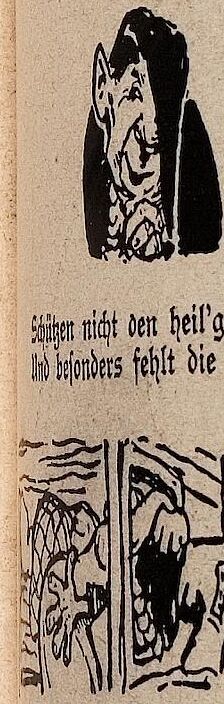 Schützen nicht den heil'g
Und besonders fehlt die